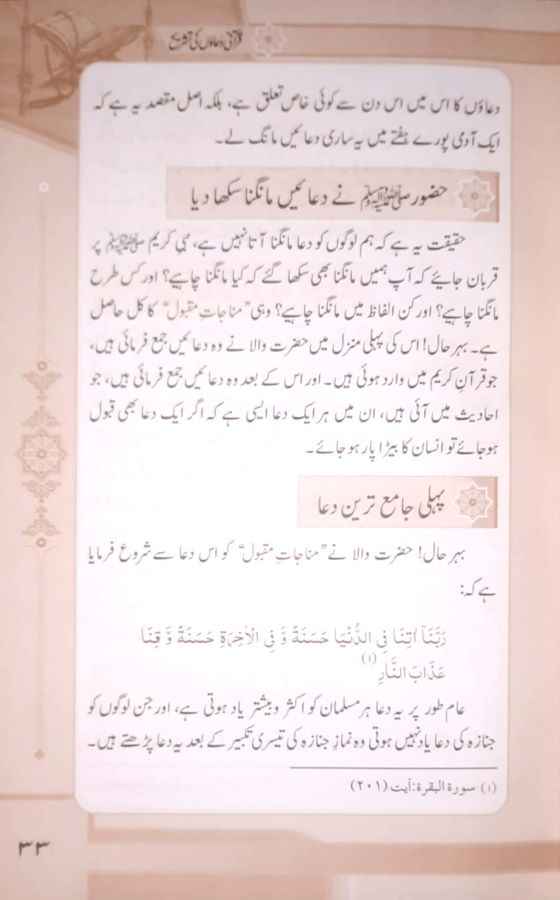 قرآنی دعاؤں کی تشریح
دعاؤں کا اس میں اس دن سے کوئی خاص تعلق ہے، بلکہ اصل مقصد یہ ہے کہ
ایک آدمی پورے ہفتے میں یہ ساری دعائیں مانگ لے۔
حضور ﷺ نے دعائیں مانگنا سکھا دیا
حقیقت یہ ہے کہ ہم لوگوں کو دعا مانگنا آتا نہیں ہے، نبی کریم ﷺ پر
قربان جائیے کہ آپ ہمیں مانگنا بھی سکھا گئے کہ کیا مانگنا چاہیے؟ اور کس طرح
مانگنا چاہیے؟ اور کن الفاظ میں مانگنا چاہیے؟ وہی ”مناجاتِ مقبول“ کا کل حاصل
ہے۔ بہر حال! اس کی پہلی منزل میں حضرت والا نے وہ دعائیں جمع فرمائی ہیں،
جو قرآنِ کریم میں وارد ہوئی ہیں۔ اور اس کے بعد وہ دعائیں جمع فرمائی ہیں، جو
احادیث میں آئی ہیں، ان میں ہر ایک دعا ایسی ہے کہ اگر ایک دعا بھی قبول
ہو جائے تو انسان کا بیڑا پار ہو جائے۔
پہلی جامع ترین دعا
بہر حال! حضرت والا نے ”مناجاتِ مقبول“ کو اس دعا سے شروع فرمایا
ہے کہ:
رَبَّنَآ اٰتِنَا فِی الدُّنْیَا حَسَنَةً وَّ فِی الْاٰخِرَةِ حَسَنَةً وَّ قِنَا
عَذَابَ النَّارِ (۱)
عام طور پر یہ دعا ہر مسلمان کو اکثر و بیشتر یاد ہوتی ہے، اور جن لوگوں کو
جنازہ کی دعا یاد نہیں ہوتی وہ نمازِ جنازہ کی تیسری تکبیر کے بعد یہ دعا پڑھتے ہیں۔
(۱) سورۃ البقرۃ: آیت (۲۰۱)
۳۳